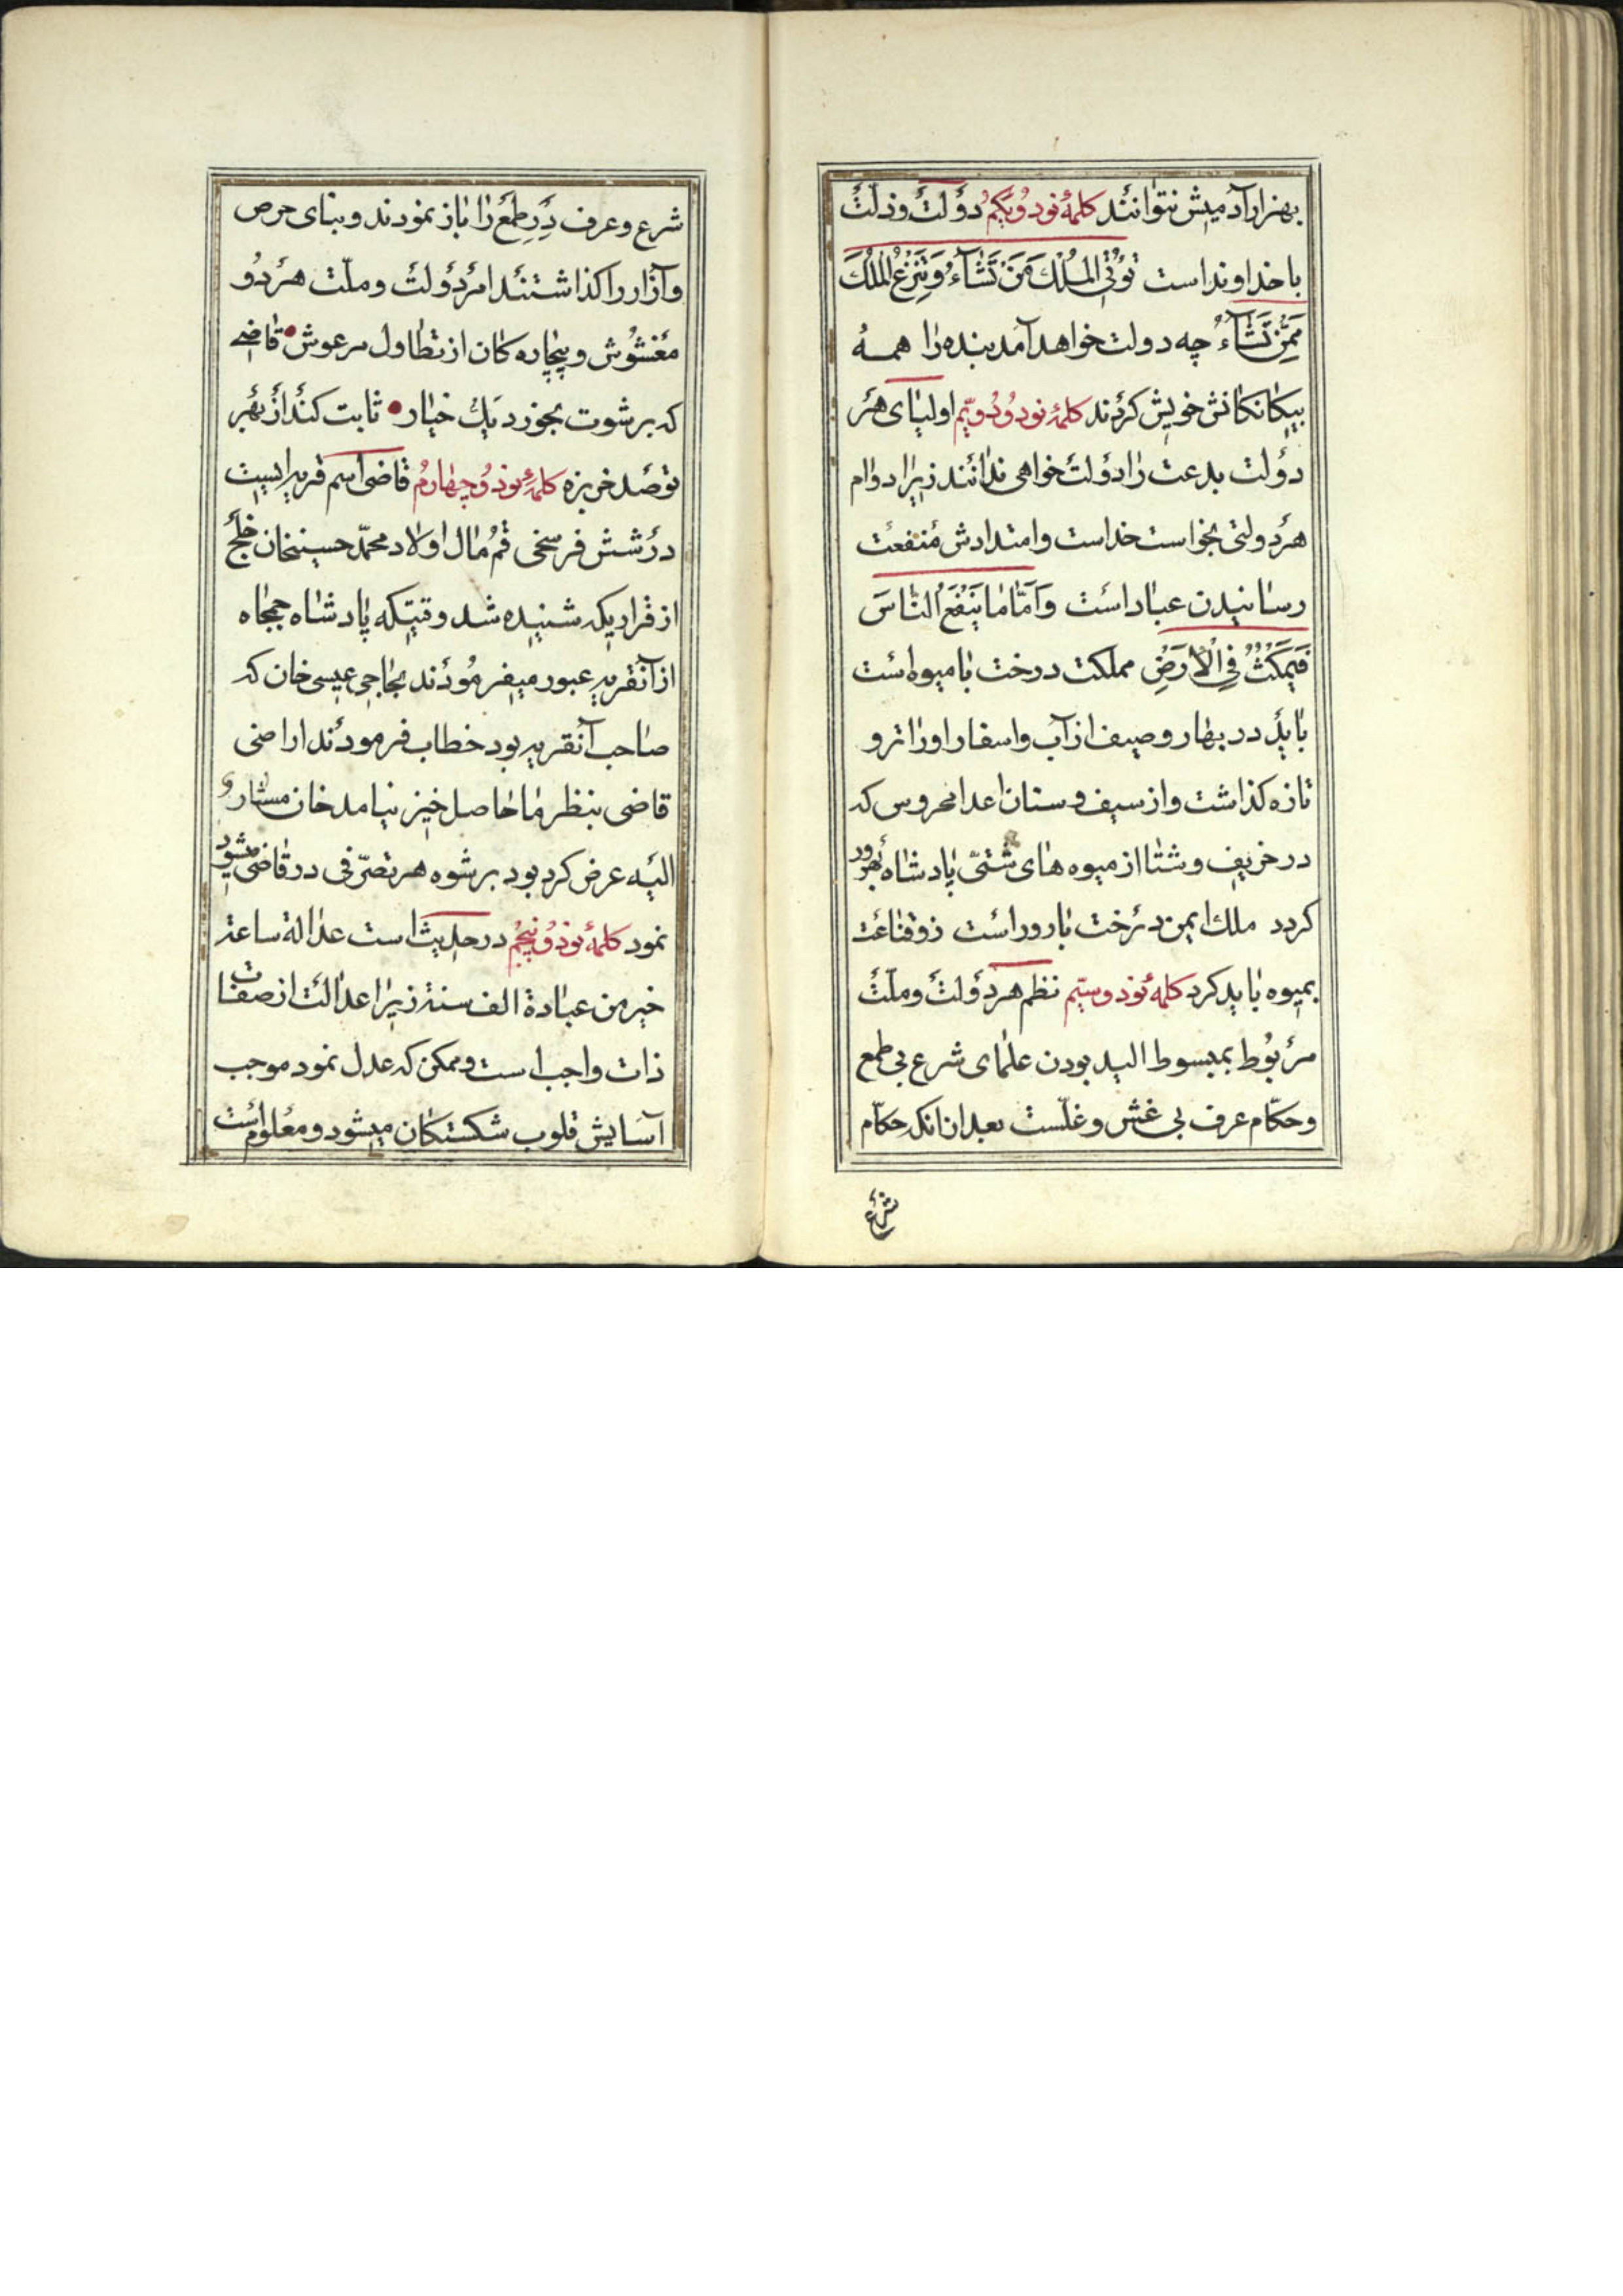 بهزار آدمیش نتوانند کلمهٔ نود و یکم دولت و ذلت
با خداوند است تُؤْتِی الْمُلْكَ مَنْ تَشَآءُ وَ تَنْزِعُ الْمُلْكَ
مِمَّنْ تَشَآءُ چه دولت خواهد آمد بنده را همه
بیکانکانش خویش کردند کلمهٔ نود و دویّم اولیای هر
دولت بدعت را دولت خواهی ندانند زیرا دوام
هر دولتی بخواست خداست و امتدادش منفعت
رسانیدن عباد است وَ اَمّا ما یَنْفَعُ النّاسَ
فَیَمْکُثُ فِی الْاَرْضِ مملکت درخت با میوه است
باید در بهار و صیف از آب و اسفار او را تر و
تازه کذاشت و از سیف و سنان اعدا محروس که
در خریف و شتا از میوه های شتّی پادشاه بهره ور
کردد ملك ایمن درخت بارور است زو قناعت
بمیوه باید کرد کلمه نود و سیّم نظم هر دولت و ملّت
مربوط بمبسوط الید بودن علمای شرع بی طمع
و حکّام عرف بی غش و غلّست بعد از انکه حکّام
شرع
شرع و عرف درِ طمع را باز نمودند و بنای حرص
و آزار را کذاشتند امر دولت و ملّت هر دو
مغشوش و بیچاره کان از تطاول مرعوش قاضی
که برشوت بخورد یك خیار ثابت کند از بهر
تو صد خربزه کلمهٔ نود و چهارم قاضی اسم قریه ایست
در شش فرسخی قم مال اولاد محمّد حسینخان خلج
از قراریکه شنیده شد وقتیکه پادشاه جمجاه
از آنقریه عبور میفرمودند بحاجی عیسی خان که
صاحب آنقریه بود خطاب فرمودند اراضی
قاضی بنظر ما حاصل خیز نیامد خان مشار
الیه عرض کرد بود برشوه هر تصرّفی در قاضی میشود
نمود کلمهٔ نود و پنجم در حدیث است عدالة ساعة
خیر من عبادة الف سنة زیرا عدالت از صفات
ذات واجب است و ممکن که عدل نمود موجب
آسایش قلوب شکستکان میشود و معلوم است